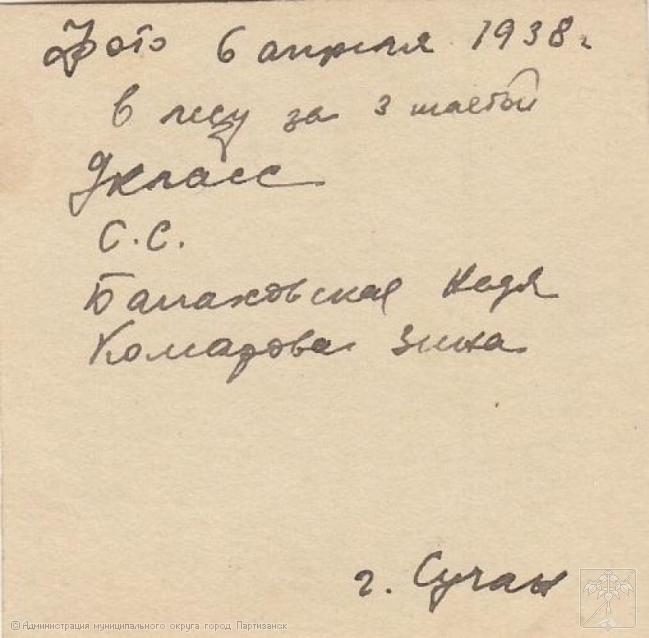 Фото 6 апреля 1938 г.
в лесу за 3 шахтой
9 класс
С.С.
Балаховская Надя
Комарова Зина
г. Сучан
© Администрация муниципального округа город Партизанск